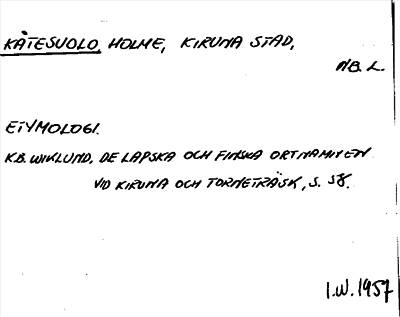 KÅTESUOLO, HOLME, KIRUNA STAD,
NB. L.
ETYMOLOGI.
K.B. WIKLUND, DE LAPSKA OCH FINSKA ORTNAMNEN
VID KIRUNA OCH TORNETRÄSK, S. 58.
I.W. 1957